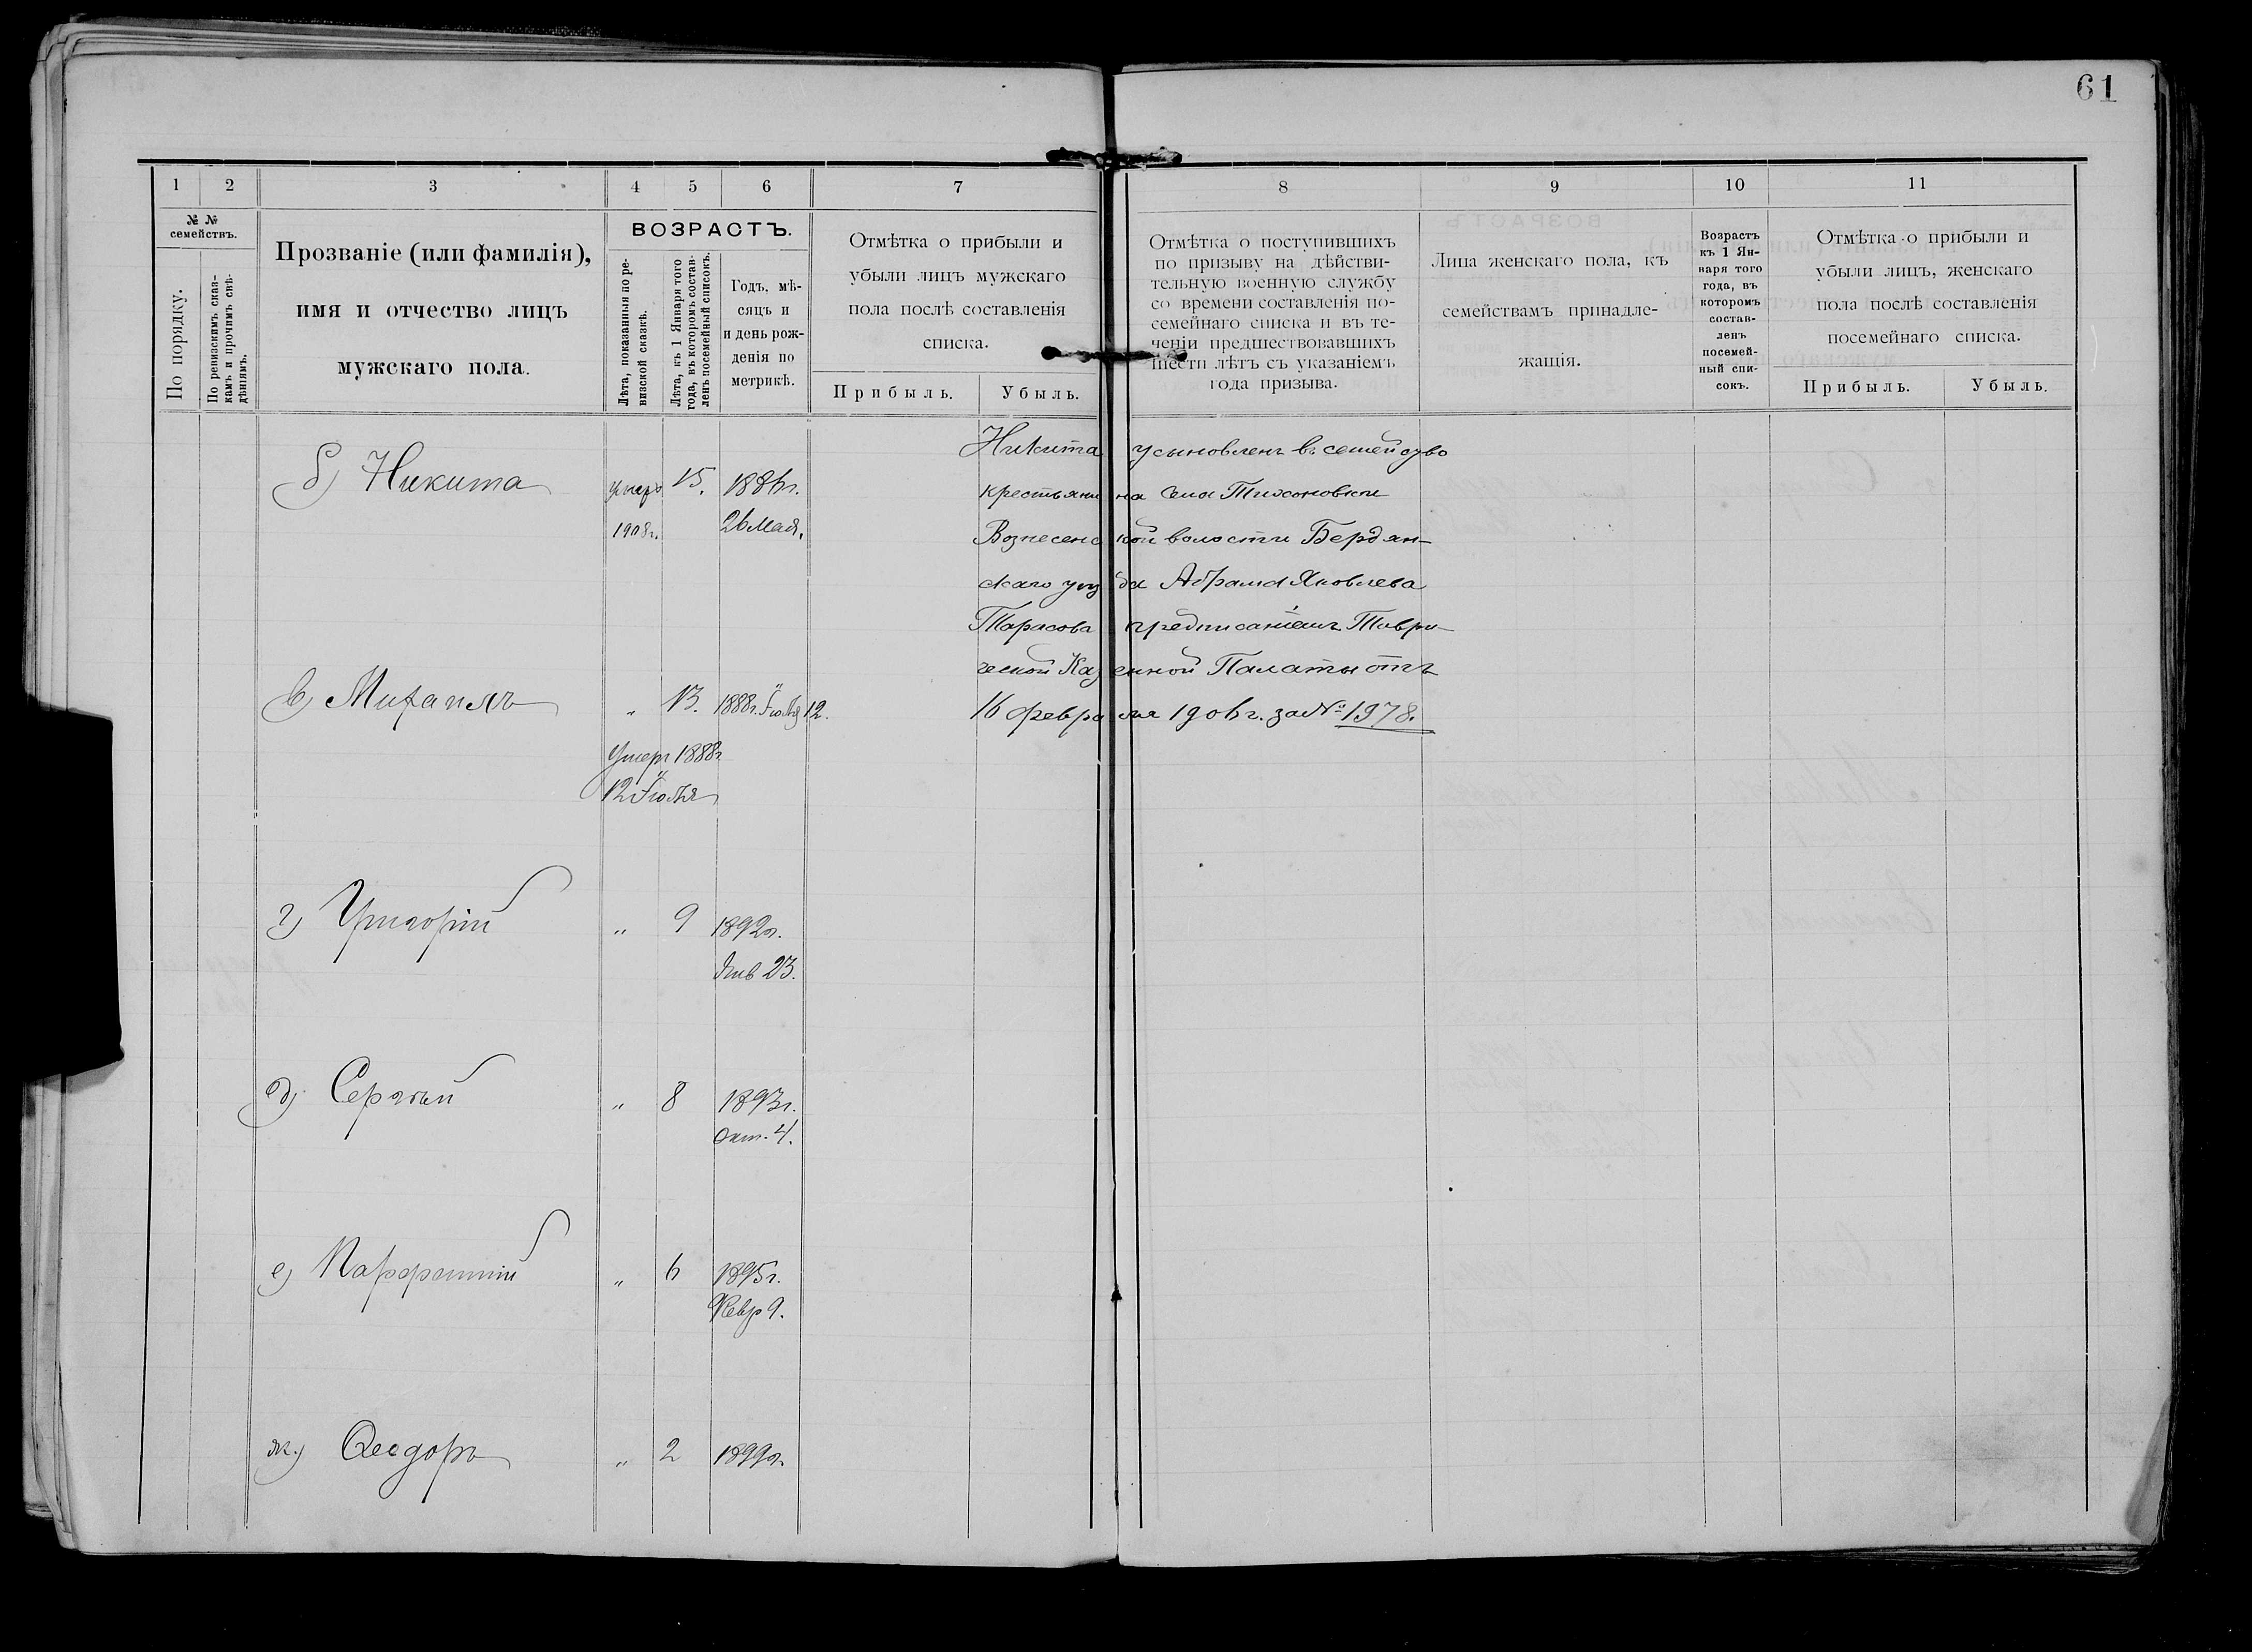 61
1 2 3 4 5 6 7 8 9 10 11
№ № семействъ.
По порядку.
По ревизскимъ сказ-
камъ и прочимъ свѣ-
дѣніямъ.
Прозваніе (или фамилія),
имя и отчество лицъ
мужскаго пола.
ВОЗРАСТЪ.
Лѣта, показанныя по ре-
визской сказкѣ.
Лѣта, къ 1 Января того
года, въ которомъ состав-
ленъ посемейный списокъ.
Годъ, мѣ-
сяцъ и
и день рож-
денія по
метрикѣ.
Отмѣтка о прибыли и
убыли лицъ мужскаго
пола послѣ составленія
списка.
Прибыль. Убыль.
Отмѣтка о поступившихъ
по призыву на дѣйстви-
тельную военную службу
со времени составленія по-
семейнаго списка и въ те-
ченіи предшествовавшихъ
шести лѣтъ съ указаніемъ
года призыва.
Лица женскаго пола, къ
семействамъ принадле-
жащія.
Возрастъ
къ 1 Ян-
варя того
года, въ
которомъ
состав-
ленъ
посемей-
ный спи-
сокъ.
Отмѣтка о прибыли и
убыли лицъ, женскаго
пола послѣ составленія
посемейнаго списка.
Прибыль. Убыль.
б) Никита умеръ 15. 1886г.
1908г. 26 Мая.
Никита усыновленъ въ семейство
крестьянина села Тихоновки
Вознесенской волости Бердян-
скаго уезда Абрама Яковлева
Тарасова предписаніемъ Таври-
ческой Казенной Палаты отъ
16 февраля 1906г. за № 1978.
в) Михаилъ " 13. 1888г. Іюля 12.
Умеръ 1888г
12 Іюля
г) Григорій " 9 1892г.
Янв 23.
д) Сергѣй " 8 1893г.
Окт. 4.
е) Парфентій " 6 1895г.
Февр 9.
ж) Ѳеодоръ " 2 1899г.